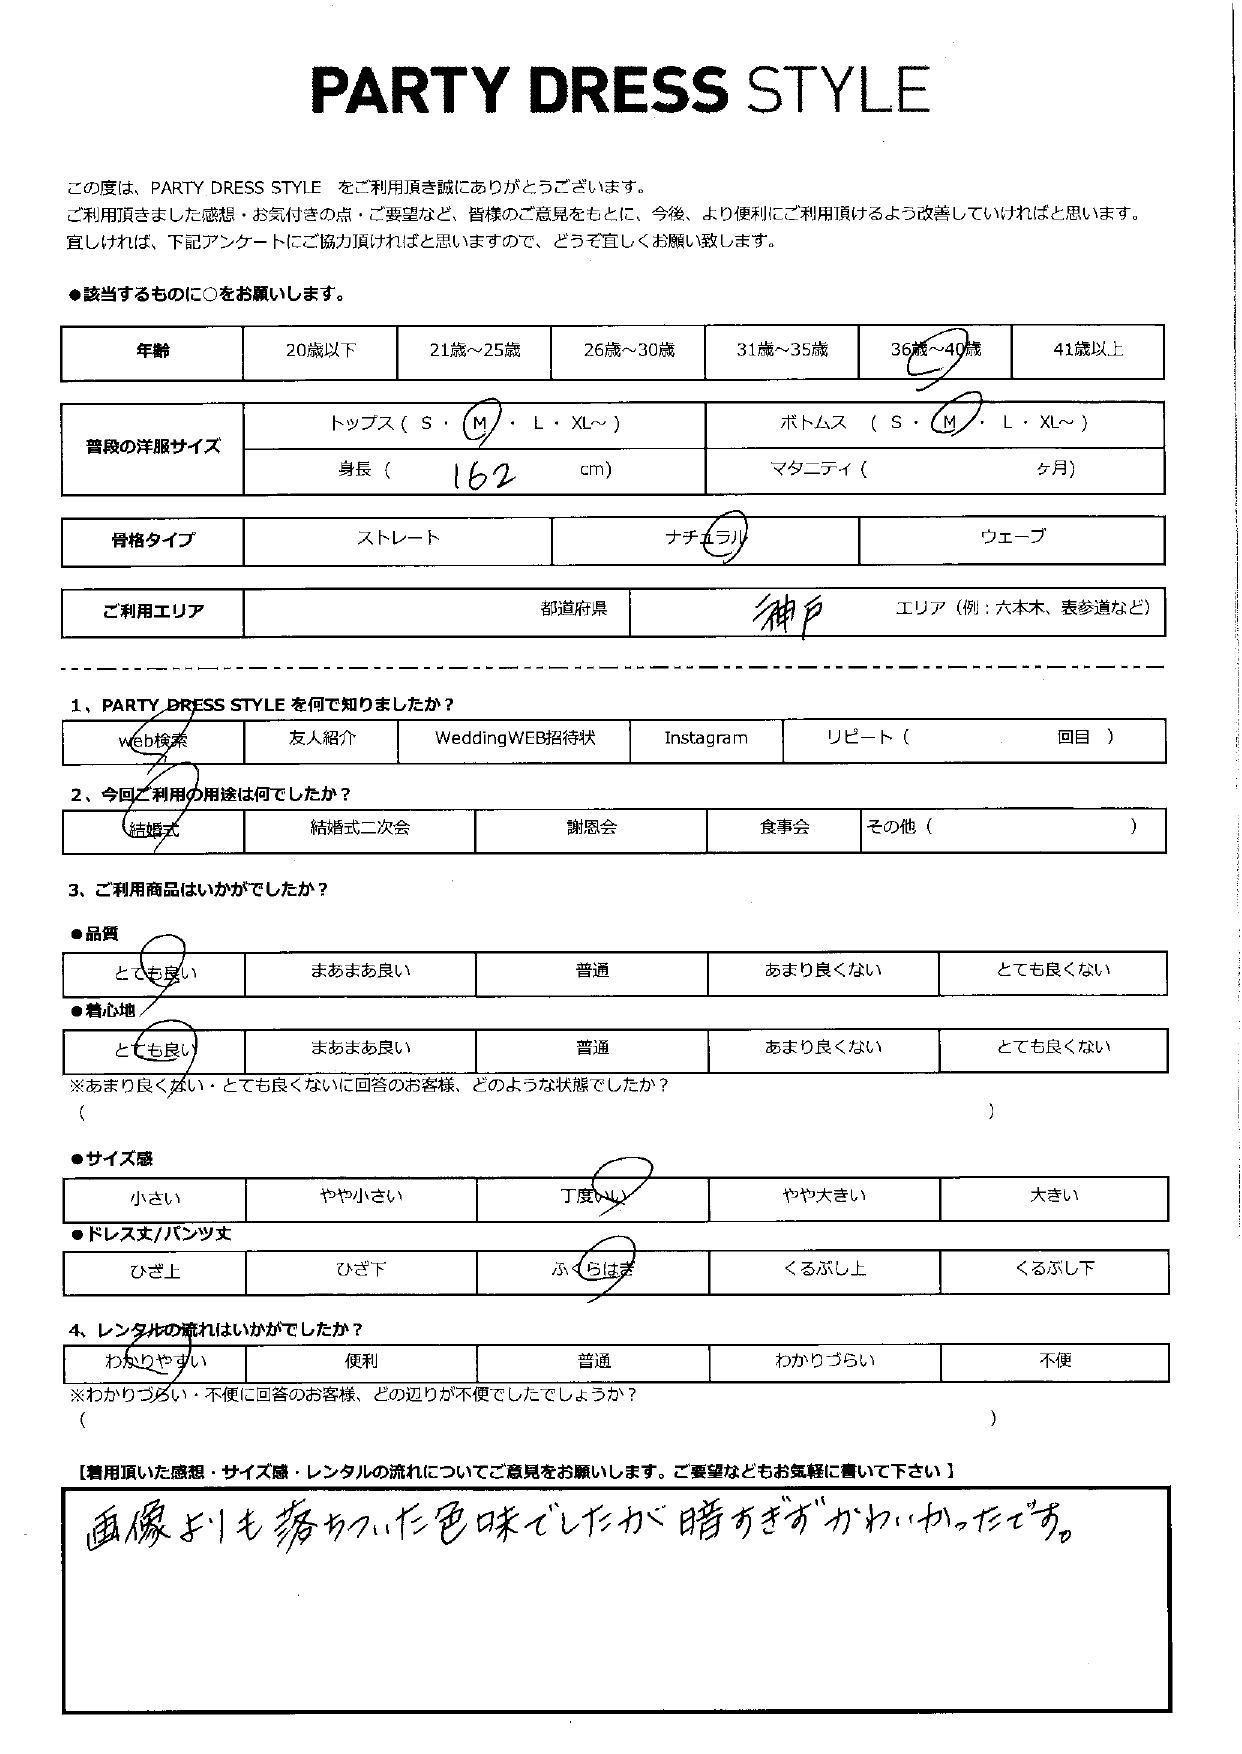 PARTY DRESS STYLE
この度は、PARTY DRESS STYLE　をご利用頂き誠にありがとうございます。
ご利用頂きました感想・お気付きの点・ご要望など、皆様のご意見をもとに、今後、より便利にご利用頂けるよう改善していければと思います。
宜しければ、下記アンケートにご協力頂ければと思いますので、どうぞ宜しくお願い致します。
●該当するものに○をお願いします。
年齢 20歳以下 21歳～25歳 26歳～30歳 31歳～35歳 36歳～40歳 41歳以上
普段の洋服サイズ トップス ( S ・ M ・ L ・ XL～ ) ボトムス ( S ・ M ・ L ・ XL～ )
身長 ( 162 cm) マタニティ ( ヶ月)
骨格タイプ ストレート ナチュラル ウェーブ
ご利用エリア 都道府県 神戸 エリア（例：六本木、表参道など）
1、PARTY DRESS STYLE を何で知りましたか？
web検索 友人紹介 WeddingWEB招待状 Instagram リピート（ 回目 ）
2、今回ご利用の用途は何でしたか？
結婚式 結婚式二次会 謝恩会 食事会 その他（ ）
3、ご利用商品はいかがでしたか？
●品質
とても良い まあまあ良い 普通 あまり良くない とても良くない
●着心地
とても良い まあまあ良い 普通 あまり良くない とても良くない
※あまり良くない・とても良くないに回答のお客様、どのような状態でしたか？
（ ）
●サイズ感
小さい やや小さい 丁度いい やや大きい 大きい
●ドレス丈/パンツ丈
ひざ上 ひざ下 ふくらはぎ くるぶし上 くるぶし下
4、レンタルの流れはいかがでしたか？
わかりやすい 便利 普通 わかりづらい 不便
※わかりづらい・不便に回答のお客様、どの辺りが不便でしたでしょうか？
（ ）
【着用頂いた感想・サイズ感・レンタルの流れについてご意見をお願いします。ご要望などもお気軽に書いて下さい 】
画像よりも落ちついた色味でしたが暗すぎずかわいかったです。